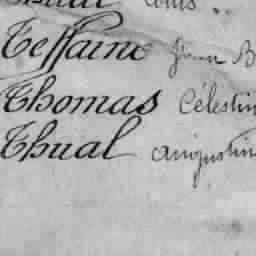 Louis
Teffaine Jean B
Thomas Célestin
Thual Augustin